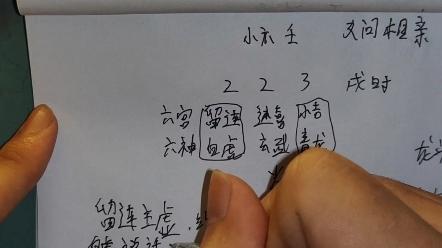 小六壬 又问相亲
2 2 3 戌时
六宫 留连 速喜 小吉
六神 白虎 玄武 青龙
龙
留连主虚